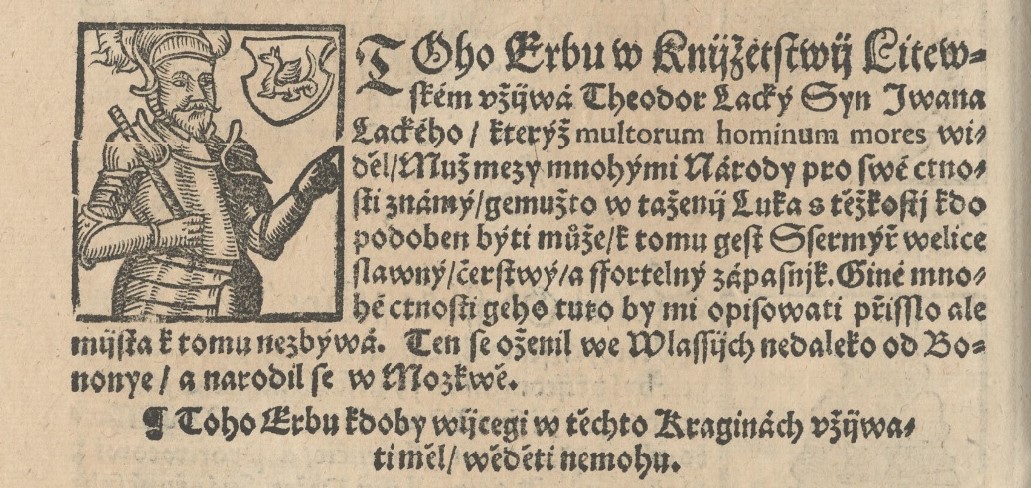 TOho Erbu w Knijžetſtwij Litew-
ſkém vžijwá Theodor Lacký Syn Jwana
Lackého / kterýž multorum hominum mores wi-
děl/Muž mezy mnohými Národy pro ſwé ctno-
ſti známý/gemužto w taženij Luka s těžkoſtj kdo
podoben býti může/k tomu geſt Sſermýř welice
ſlawný/čerſtwý/a ffortelný zápaſnjk. Giné mno-
hé ctnoſti geho tuto by mi opiſowati přiſſlo ale
mijſta k tomu nezbýwá. Ten ſe oženil we Wlaſſijch nedaleko od Bo-
nonye / a narodil ſe w Mozkwě.
¶ Toho Erbu kdoby wijcegi w těchto Kraginách vžijwa-
ti měl/ wěděti nemohu.